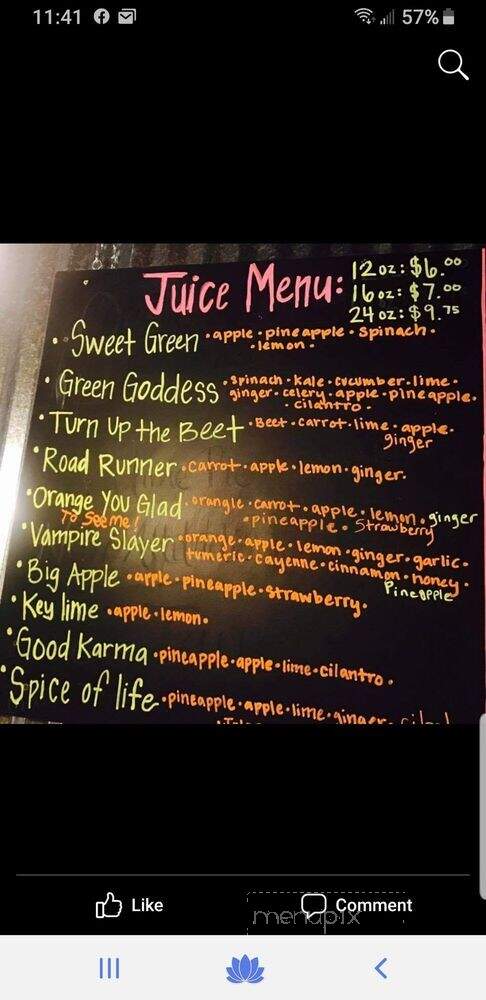 11:41
57%
Juice Menu:
12 oz: $6.00
16 oz: $7.00
24 oz: $9.75
• Sweet Green • apple • pineapple • spinach •
• lemon •
• Green Goddess • spinach • kale • cucumber • lime •
ginger • celery • apple • pineapple •
• cilantro •
• Turn Up the Beet • Beet • carrot • lime • apple •
ginger
• Road Runner • carrot • apple • lemon • ginger •
• Orange You Glad • orangle • carrot • apple • lemon • ginger
To See me! • pineapple • Strawberry
• Vampire Slayer • orange • apple • lemon • ginger • garlic •
tumeric • cayenne • cinnamon • honey •
Pineapple
• Big Apple • apple • pineapple • strawberry •
• Key lime • apple • lemon •
• Good Karma • pineapple • apple • lime • cilantro •
• Spice of life • pineapple • apple • lime • ginger •
Like
Comment
menupix